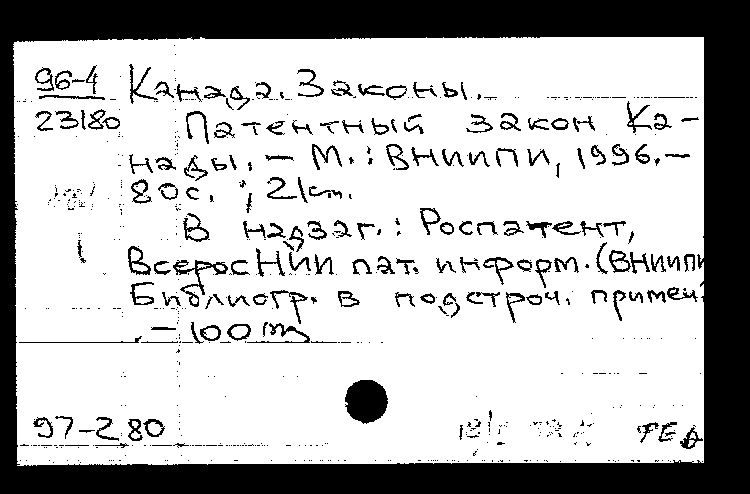 96-4 Канада. Законы.
23180 Патентный закон Ка-
нады. - М. : ВНИИПИ, 1996. -
80с. ; 21 см.
В надзаг.: Роспатент,
ВсеросНИИ пат. информ. (ВНИИПИ
Библиогр. в подстроч. примеч.
. - 100
97-280